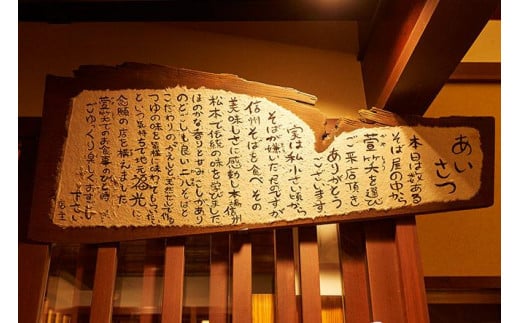 あいさつ
本日は数ある
そば屋の中から
萱笑を選び
ご来店頂き
ありがとう
ございます
実は私小さい頃から
そばが嫌いだったのですが
信州そばを食べ、その
美味しさに感動し本場信州
松本で伝統の味を学びました
ほのかな香りと甘み、こしがあり
のどごしも良い二八そばと
こだわりのかえしとだしで作った
つゆの味を皆様に味わってもらいたい
という気持ちで地元福光に
念願の店を構えました
萱笑でのお食事のひと時
ごゆっくり楽しんで下さい
店主